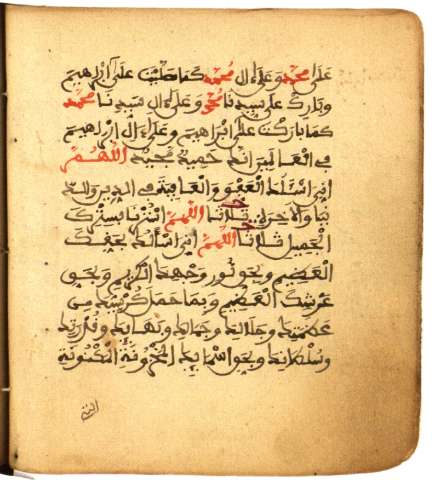 على محمد وعلى ءال محمد كما صليت على إبراهيم
وبارك على سيدنا محمد وعلى ءال سيدنا محمد
كما باركت على ابراهيم وعلى ءال ابراهيم
في العالمين انك حميد مجيد اللهم
اني اسئلك العفو والعافية في الدين والد
نيا والاخرة ثلاثا اللهم استرنا بسترك
الجميل ثلاثا اللهم اني اسألك بحقك
العظيم وبحق نور وجهك الكريم وبحق
عرشك العظيم وبما حمل كرسيك من
عظمتك وجلالك وجمالك وبهائك وقدرتك
وسلطانك وبحق اسمائك المخزونة المكنونة
التي